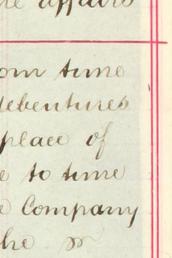 affairs
om time
debentures
place of
e to time
e Company
the or